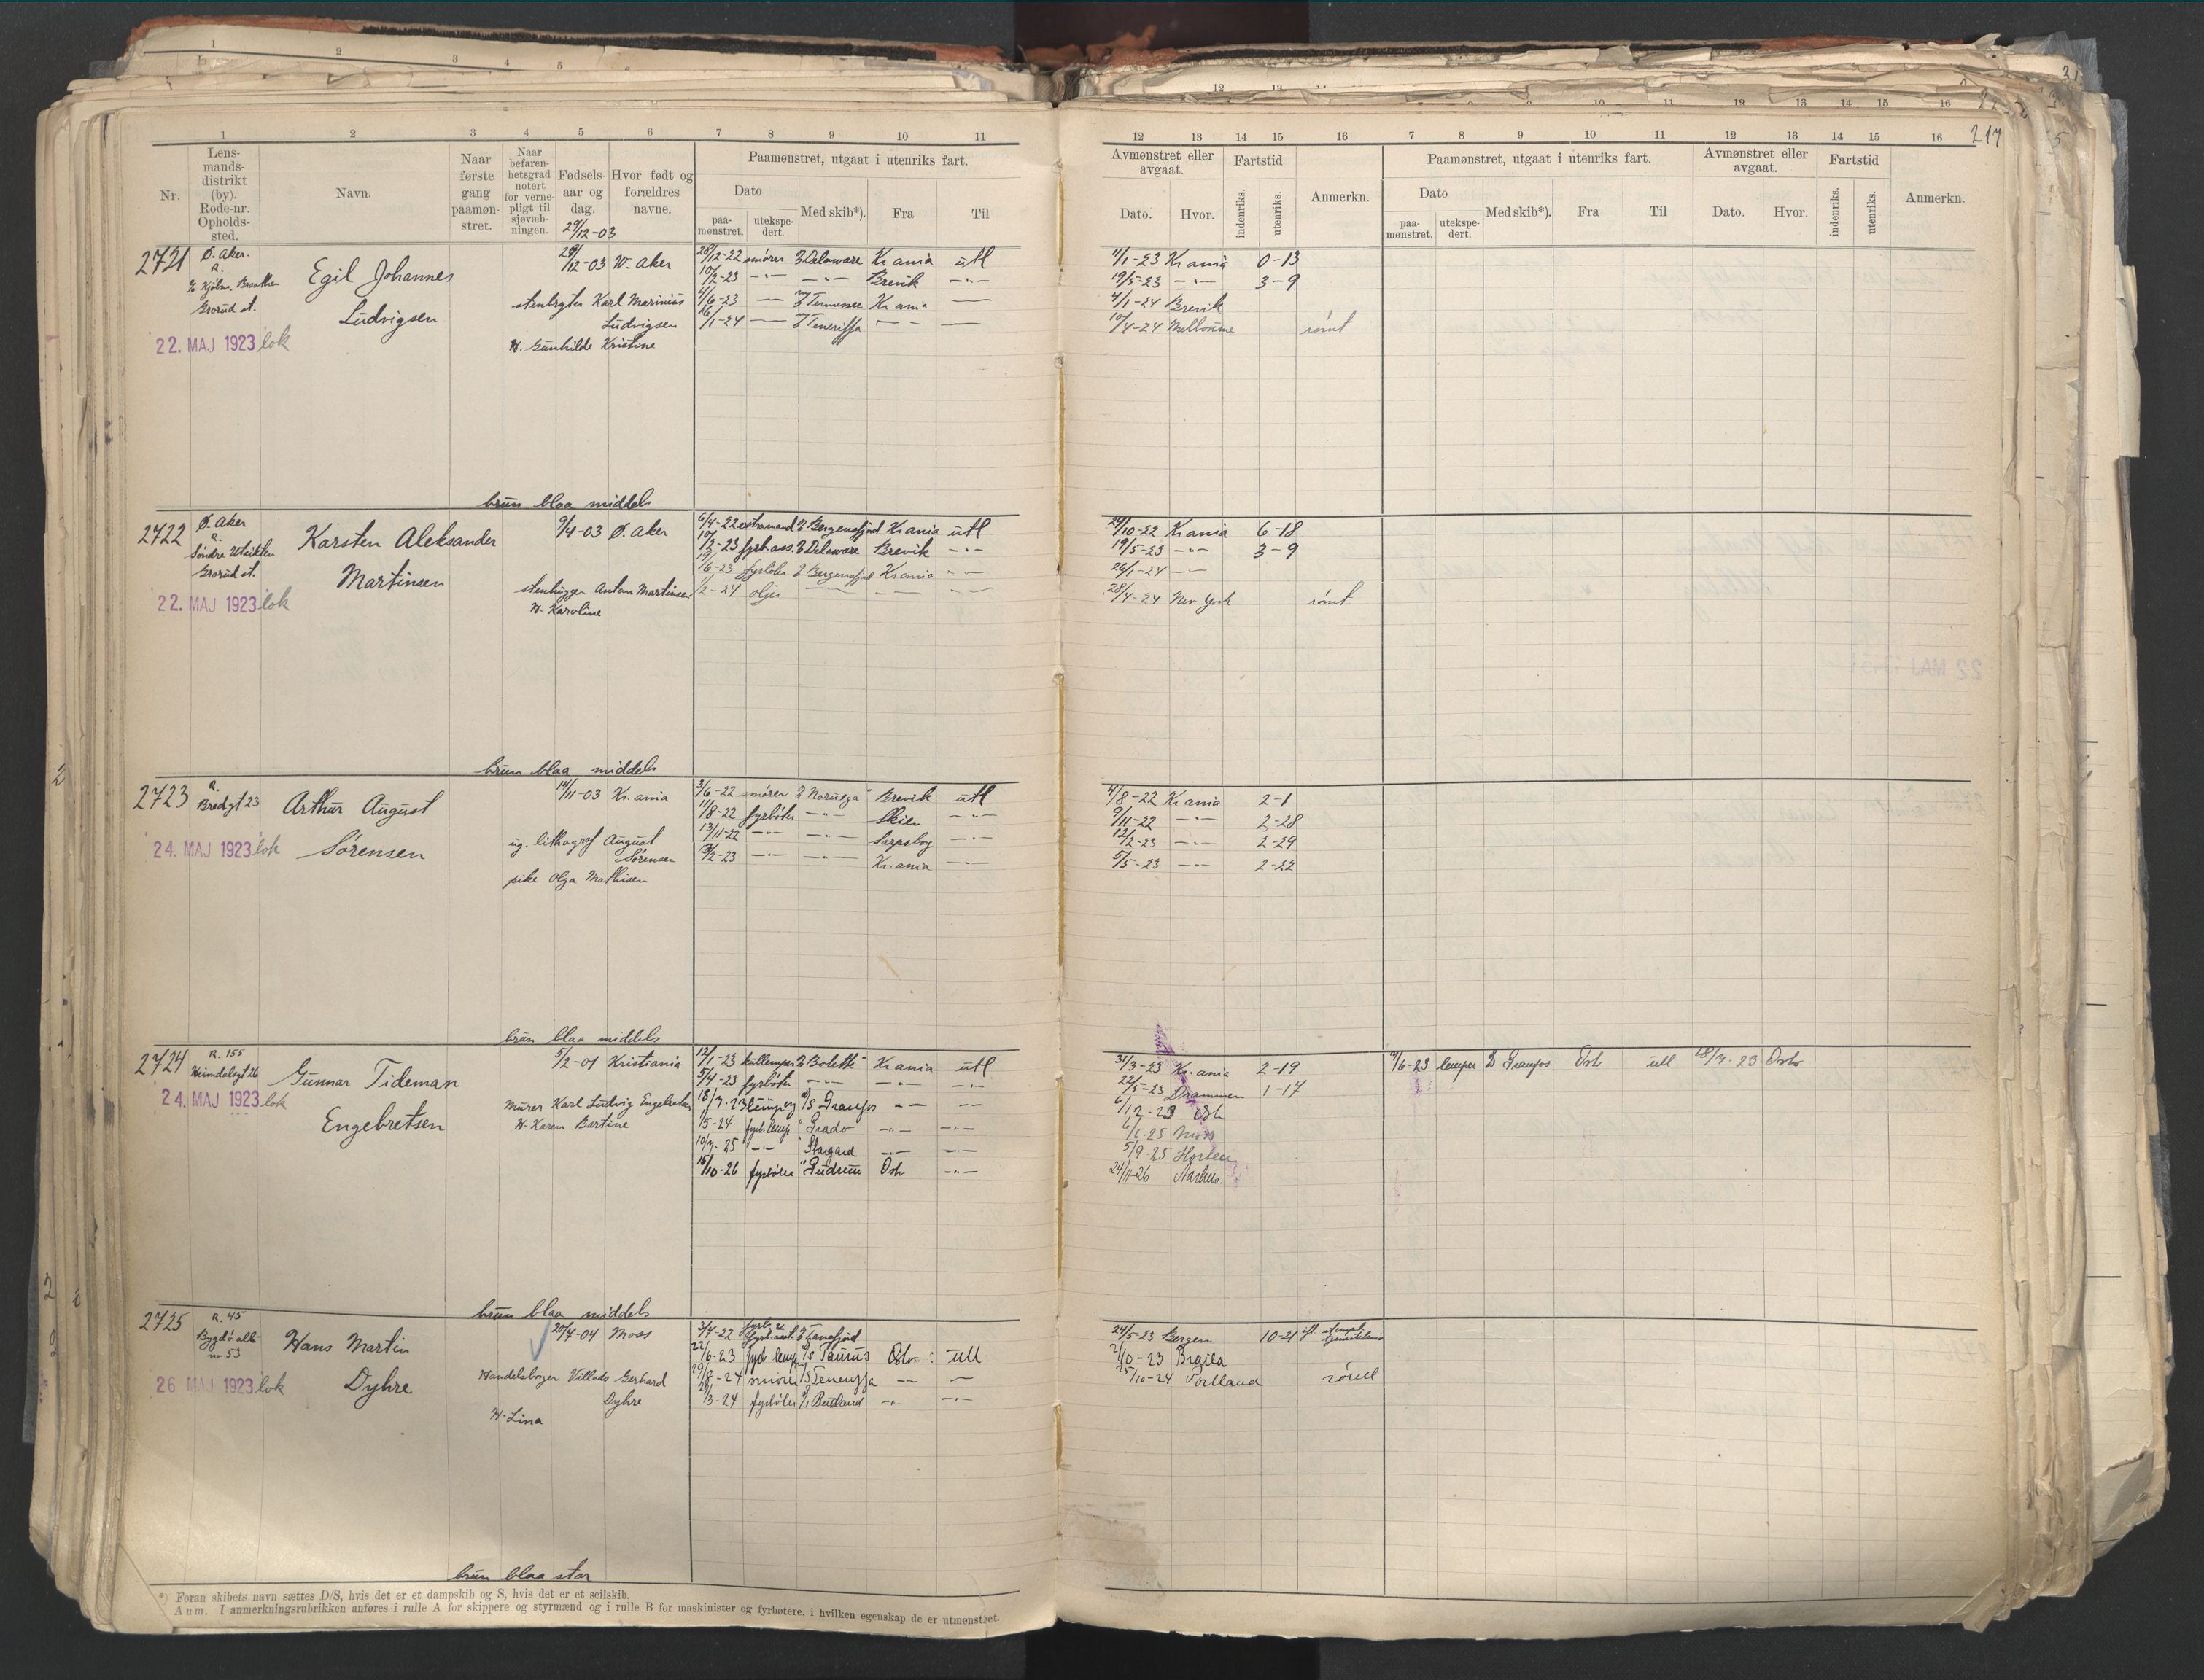 217
1 2 3 4 5 6 7 8 9 10 11
Nr.
Lens-
mands-
distrikt
(by).
Rode-nr.
Opholds-
sted.
Navn.
Naar
første
gang
paamøn-
stret.
Naar
befaren-
hetsgrad
notert
for verne-
pligt til
sjøvæb-
ningen.
Fødsels-
aar og
dag.
Hvor født og
forældres
navne.
Paamønstret, utgaat i utenriks fart.
Dato
paa-
mønstret.
utekspe-
dert.
Med skib*).
Fra
Til
12 13 14 15 16 7 8 9 10 11 12 13 14 15 16
Avmønstret eller
avgaat.
Dato.
Hvor.
Fartstid
indenriks.
utenriks.
Anmerkn.
Paamønstret, utgaat i utenriks fart.
Dato
paa-
mønstret.
utekspe-
dert.
Med skib*).
Fra
Til
Avmønstret eller
avgaat.
Dato.
Hvor.
Fartstid
indenriks.
utenriks.
Anmerkn.
29/12-03
2721
Ø. Aker.
R.
Grorud st.
22. MAJ 1923 lok
Egil Johannes
Ludvigsen
12-03 W. Aker
Karl Marinius
Ludvigsen
H. Gunhilde Kristine
28/12-22 smører D/S Delaware Kr ania utl
10/2-23 —"— —"— Brevik —"—
4/6-23 — Tennessee Kr ania —
16/1-24 — Teneriffa — — —
11/1-23 Kr ania 0-13
19/5-23 —"— 3-9
4/1-24 Brevik
10/4-24 Melbourne rømt
brun blaa middels
2722
Ø. Aker
R.
Søndre Utsikten
Grorud st.
22. MAJ 1923 lok
Karsten Aleksander
Martinsen
9/4-03 Ø. Aker
stenhugger Anton Martinsen
H. Karoline
6/4-22 extramand Bergensfjord Kr ania utl
10/2-23 fyrb. ass. Delaware Brevik —"—
19/6-23 fyrbøter Bergensfjord Kr ania — —
1/2-24 oljer — — —
24/10-22 Kr ania 6-18
19/5-23 —"— 3-9
26/1-24 — —
28/4-24 New York rømt
brun blaa middels
2723
R.
Bredgt 23
24. MAJ 1923 lok
Arthur August
Sørensen
14/11-03 Kr. ania
ug. lithograf August
Sørensen
pike Olga Mathisen
3/6-22 smører Noruega Brevik utl
11/8-22 fyrbøter —"— Skien —"—
13/11-22 —"— —"— Sarpsborg —"—
13/2-23 —"— —"— Kr. ania —"—
4/8-22 Kr ania 2-1
9/11-22 —"— 2-28
12/2-23 —"— 2-29
5/5-23 —"— 2-22
brun blaa middels
2724
R. 155
Heimdalsgt 26
24. MAJ 1923 lok
Gunnar Tideman
Engebretsen
5/2-01 Kristiania
Murer Karl Ludvig Engebretsen
H. Karen Bertine
12/1-23 kullemper Bolette Kr ania utl
5/4-23 fyrbøter —"— —"— —"—
18/7-23 Granfos — — — —
15-24 fyrb. lemp. —"— —"—
10/7-25 — — Stargard — —"—
15/10-26 fyrbøter Gudrun Oslo —"—
31/3-23 Kr. ania 2-19
22/5-23 Drammen 1-17
6/12-23 Oslo
25 Moss
5/9-25 Horten
24/11-26 Aarhus.
6-23 lemper Granfos Oslo utl 18/7-23 Oslo
brun blaa middels
2725
R. 45
Bygdø allé
no 53
26 MAJ 1923 lok
Hans Martin
Dyhre
20/4-04 Moss
Handelsborger Villads Gerhard
Dyhre
H. Lina
3/4-22 Tanafjord
22/6-23 fyrb. lemp. D/S Taurus Oslo utl
29/8-24 smører Teneriffa — —
3-24 fyrbøter —"— —"—
24/5-23 Bergen 10-21
2/10-23 Braila
25/10-24 Portland rømt
brun blaa stor
*) Foran skibets navn sættes D/S, hvis det er et dampskib og S, hvis det er et seilskib.
Anm. I anmerkningsrubrikken anføres i rulle A for skippere og styrmænd og i rulle B for maskinister og fyrbøtere, i hvilken egenskap de er utmønstret.